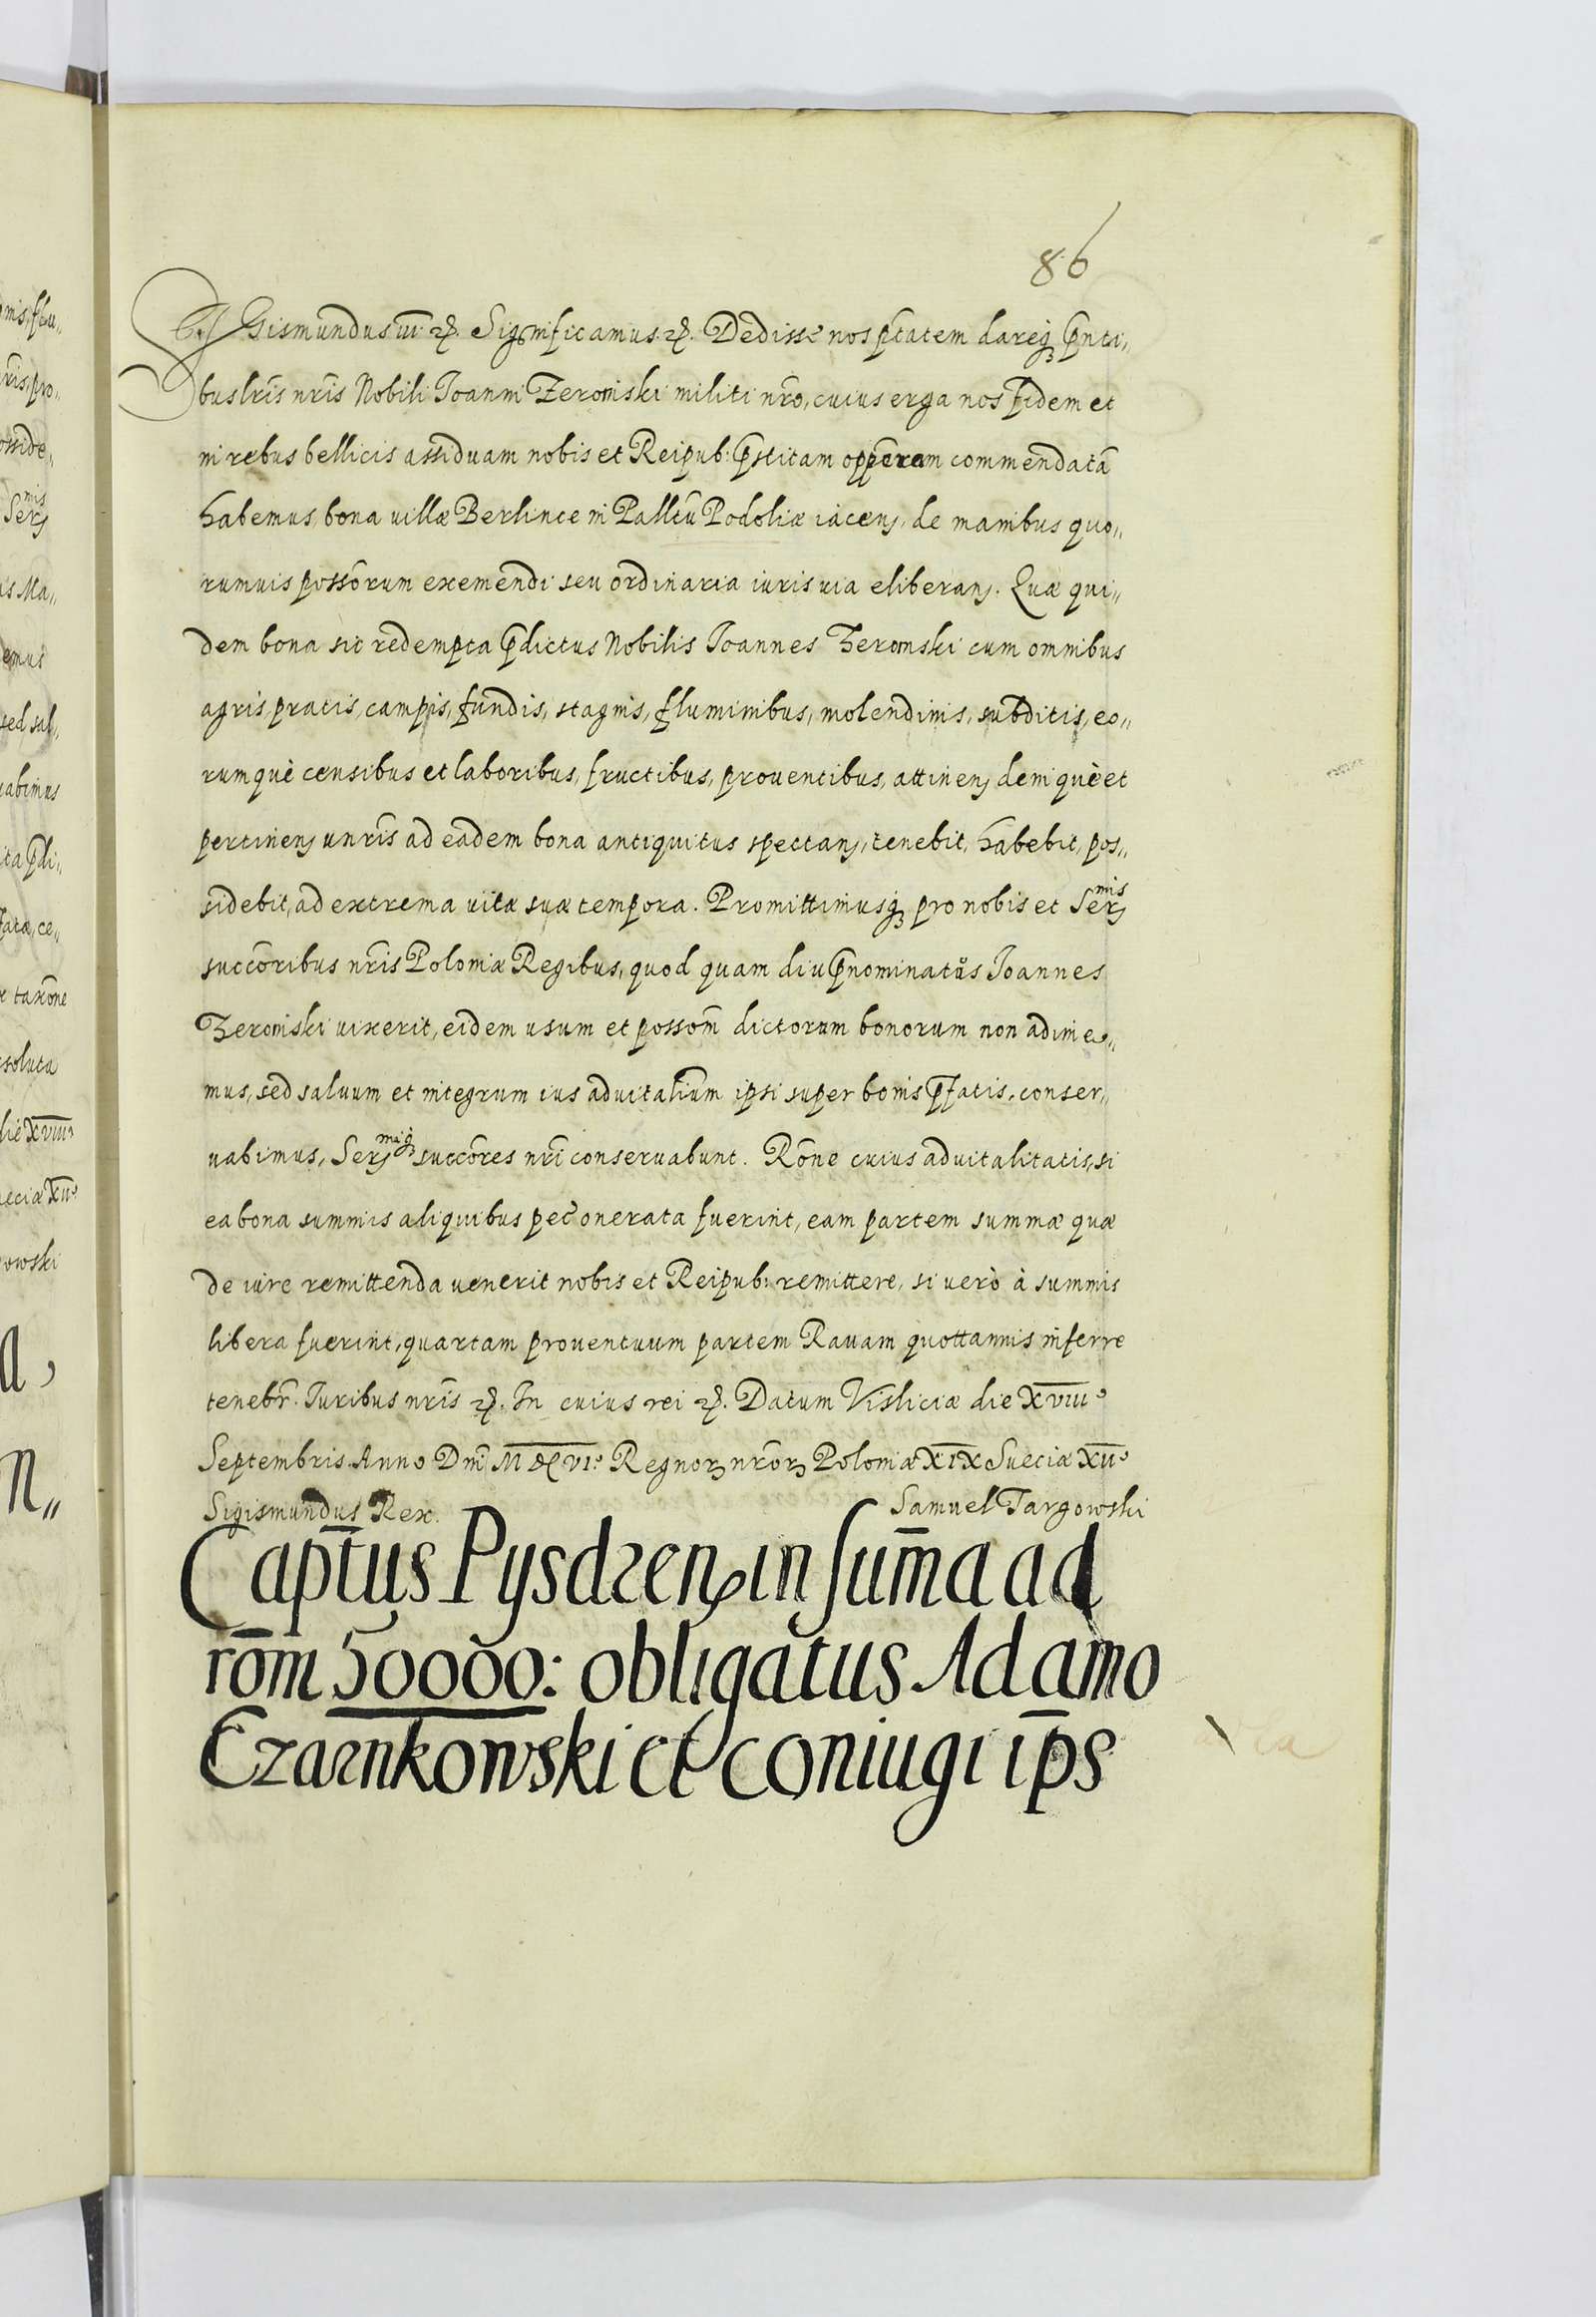 86
SIGismundus III etc. Significamus etc. Dedisse nos ptatem dareq pnti„
bus lris nris Nobili Joanni Zeromski militi nro, cuius erga nos fidem et
in rebus bellicis assiduam nobis et Reipub: pstitam opperam commendatā
habemus bona villæ Berlince in Palltū Podoliæ iacen, de manibus quo„
rumuis possorum exemendi seu ordinaria iuris via eliberan. Quæ qui„
dem bona sic redempta pdictus Nobilis Joannes Zeromski cum omnibus
agris, pratis, campis, fundis, stagnis, fluminibus, molendinis, subditis, eo„
rumquè censibus et laboribus, fructibus, prouentibus, attinen deniquè et
pertinen vnris ad eadem bona antiquitus spectan, tenebit, habebit, pos„
sidebit, ad extrema vitæ suæ tempora. Promittimusq pro nobis et Ser mis
succoribus nris Poloniæ Regibus, quod quam diu pnominatus Joannes
Zeromski vixerit, eidem usum et possom dictorum bonorum non adime„
mus, sed saluum et integrum ius aduitalium ipsi super bonis pfatis, conser„
uabimus, Ser miq succores nri conseruabunt. Rōne cuius aduitalitatis, si
ea bona summis aliquibus pec onerata fuerint, eam partem summæ quæ
de iure remittenda venerit nobis et Reipub: remittere, si verò à summis
libera fuerint, quartam prouentuum partem Rauam quottannis inferre
tenebr. Juribus nris etc. In cuius rei etc. Datum Visliciæ die XVIII
Septembris. Anno Dni MDCVI. Regnor nror Poloniæ XIX Sueciæ XII
Sigismundus Rex. Samuel Targowski
Captus Pysdren in sum̄a ad
rom 50000: obligatus Adamo
Czarnkowski et coniugi ips